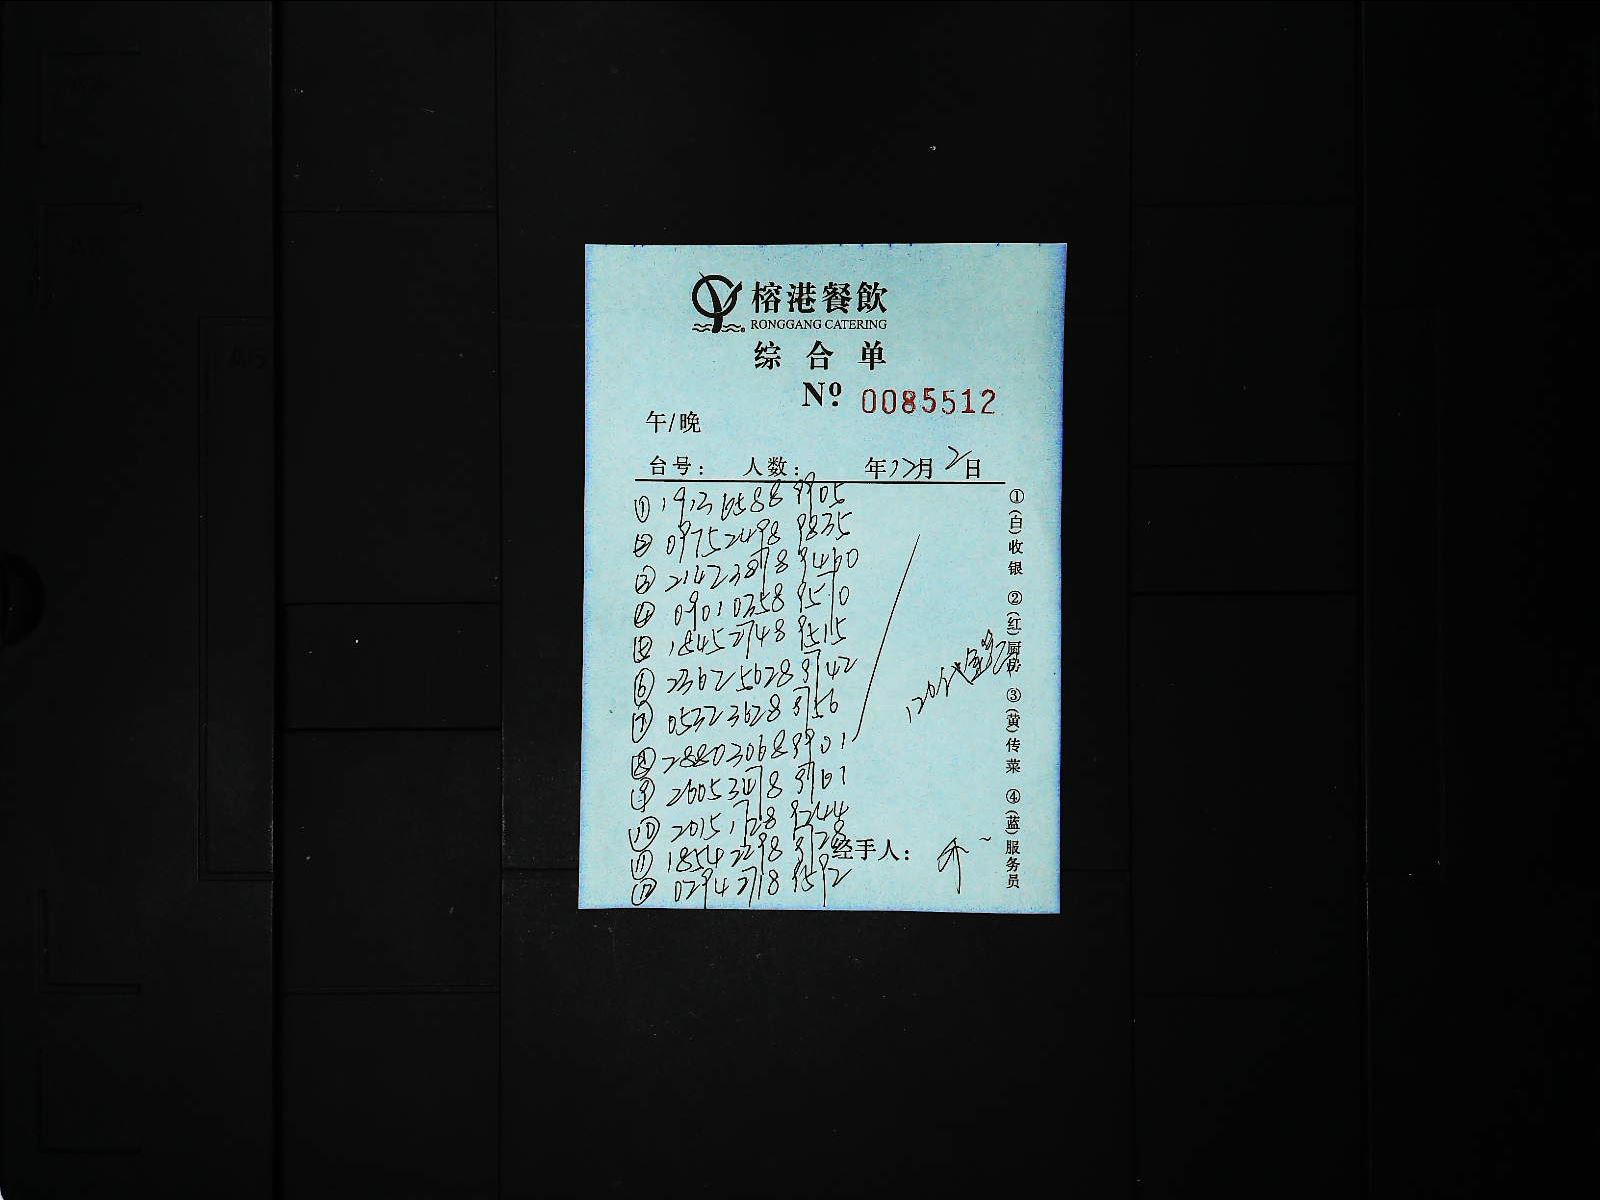 榕港餐飲
RONGGANG CATERING
综合单
Nº 0085512
午/晚
台号： 人数： 年12月2日
① 1913 6588 9905
② 0975 2498 9835
③ 2142 3898 9460
④ 0901 0358 9510
⑤ 1845 2748 9515
⑥ 2362 5628 9742
⑦ 0532 3628 9756
⑧ 2880 3068 9901
⑨ 2605 3478 9761
⑩ 2015 1728 9244
⑪ 1854 2298 9728
⑫ 0294 2718 9592
经手人：
①(白)收银 ②(红)厨房 ③(黄)传菜 ④(蓝)服务员